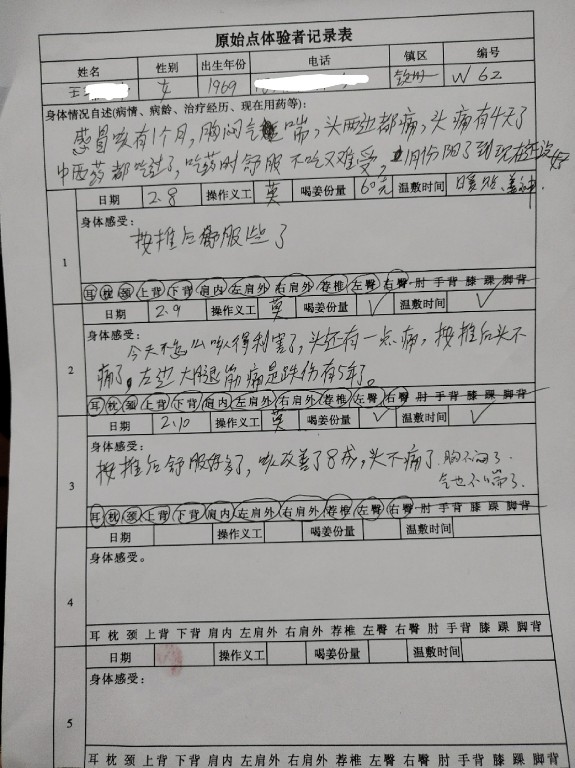 原始点体验者记录表
姓名 性别 出生年份 电话 镇区 编号
王 女 1969 W 62
身体情况自述(病情、病龄、治疗经历、现在用药等):
感冒咳有1个月,胸闷气喘,头两边都痛,头痛有4天了
中西药都吃过了,吃药时舒服不吃又难受,1月份阳了到现在还没好
日期 2.8 操作义工 莫 喝姜份量 60元 温敷时间
身体感受:
按推后舒服些了
1
耳 枕 颈 上背 下背 肩内 左肩外 右肩外 荐椎 左臀 右臀 肘 手背 膝 踝 脚背
日期 2.9 操作义工 莫 喝姜份量 ✓ 温敷时间 ✓
身体感受:
2
今天不怎么咳得利害了,头还有一点痛,按推后头不
痛了,左边大腿筋痛是跌伤有5年了。
耳 枕 颈 上背 下背 肩内 左肩外 右肩外 荐椎 左臀 右臀 肘 手背 膝 踝 脚背
日期 2.10 操作义工 莫 喝姜份量 ✓ 温敷时间 ✓
身体感受:
3
按推后舒服好多了,咳改善了8成,头不痛了.胸不闷了.
气也不喘了.
耳 枕 颈 上背 下背 肩内 左肩外 右肩外 荐椎 左臀 右臀 肘 手背 膝 踝 脚背
日期 操作义工 喝姜份量 温敷时间
身体感受。
4
耳 枕 颈 上背 下背 肩内 左肩外 右肩外 荐椎 左臀 右臀 肘 手背 膝 踝 脚背
日期 操作义工 喝姜份量 温敷时间
身体感受:
5
耳 枕 颈 上背 下背 肩内 左肩外 右肩外 荐椎 左臀 右臀 肘 手背 膝 踝 脚背